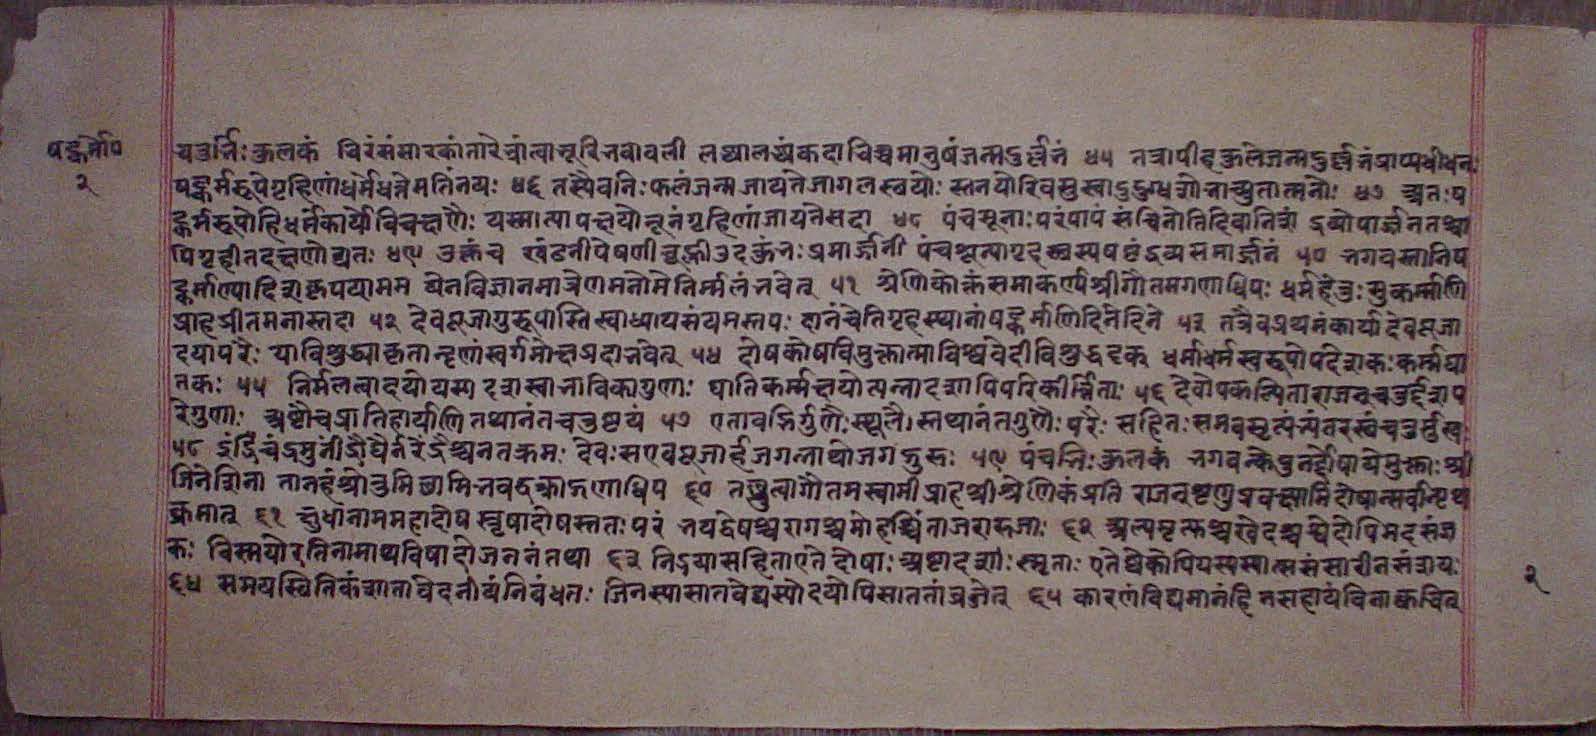 षट्कर्मोप
२
चतुर्भिः कुलकं चिरं संसारकांतारे भ्रांत्वा भूरिभवावली लब्धालब्धं कदाचिच्च मानुषं जन्म दुर्लभं ४५ तत्रापीह कुले जन्म दुर्लभं प्राप्य धीधनः
षट्कर्मरूपे गृहिणां धर्मे धत्ते मतिं नयः ४६ तस्यैव निःफलं जन्म जायते जागलस्थयोः स्तनयोरिव ४७ अतः ष
ट्कर्मरूपो हि धर्मः कार्यो विचक्षणैः यस्मात्पापक्षयो नूनं गृहिणां जायते सदा ४८ पंचसूनाः परं पापं संचिनोति दिवानिशं द्रव्योपार्जनतश्चा
पि गृही तद्रक्षणोद्यतः ४९ उक्तं च खंडनी पेषणी चुल्ली उदकुंभः प्रमार्जनी पंचशून्या गृहस्थस्य षष्ठं द्रव्यसमार्जनं ५० भगवंस्तानि ष
ट्कर्माण्यादिश कृपया मम येन विज्ञानमात्रेण मनो मे निर्मलं भवेत् ५१ श्रेणिकोक्तं समाकर्ण्य श्रीगौतमगणाधिपः धर्महेतुः सुकर्माणि
प्राह प्रीतमनास्तदा ५२ देवपूजा गुरूपास्ति स्वाध्याय संयमस्तपः दानं चेति गृहस्थानां षट्कर्माणि दिने दिने ५३ तत्रैव प्रथमं कार्या देवपूजा
दयापरैः या विशुद्ध्या कृता नृणां स्वर्गमोक्षप्रदा भवेत् ५४ दोषकोषविमुक्तात्मा विश्ववेदी विशुद्धदृक् धर्माधर्मस्वरूपोपदेशकः कर्मघा
तकः ५५ निर्मलत्वादयो यस्य दश स्वाभाविका गुणाः घातिकर्मक्षयोत्पन्ना दशापि परिकीर्तिताः ५६ देवोपकल्पिता राजन् चतुर्दश प
रे गुणाः अष्टौ च प्रातिहार्याणि तथानंतचतुष्टयं ५७ एतावद्भिर्गुणैः स्थूलै। स्तथानंतगुणैः परैः सहितः समवसृत्यं चतुर्मुखः
५८ धैर्नरेंद्रैश्च नतक्रमः देवः स एव पूजार्ह जगन्नाथो जगद्गुरुः ५९ पंचभिः कुलकं भगवन्केपुनर्द्दोषा ये मुक्ताः श्री
जिनेशिना तानहं श्रोतुमिच्छामि भवद्वक्त्राद्गणाधिप ६० तच्छ्रुत्वा गौतमस्वामी प्राह श्रीश्रेणिकं प्रति राजन् शृणु प्रवक्ष्यामि दोषान्सर्वान्पृथ
क्क्रमात् ६१ क्षुधा नाम महादोष स्तृषादोषस्ततः परं भयद्वेषश्च रागश्च मोहश्चिंता जरा रुजाः ६२ अन्यमृत्युश्च खेदश्च स्वेदोपि मदसंज्ञ
कः विस्मयो रतिनामाथ विषादो जननं तथा ६३ निद्रया सहिता एते दोषाः अष्टादश स्मृताः एतेष्वेकोपि यस्य स्यात्स संसारी न संशयः
६४ समयस्थितिकं सातावेदनीयं निबंधतः जिनस्यासातवेद्यस्योदयोपि साततां व्रजेत् ६५ कारणं विद्यमानं हि न सहायं विना क्वचित्
२